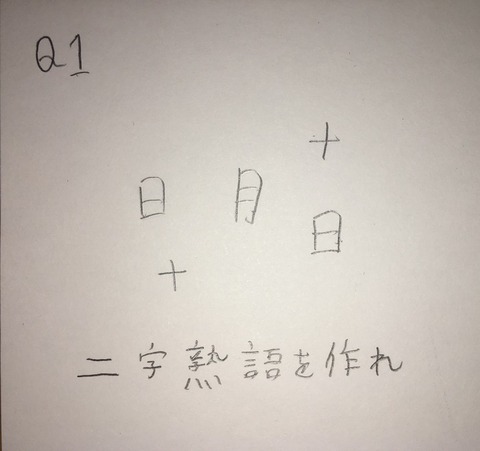 Q1
十
日 月
日
十
二字熟語を作れ